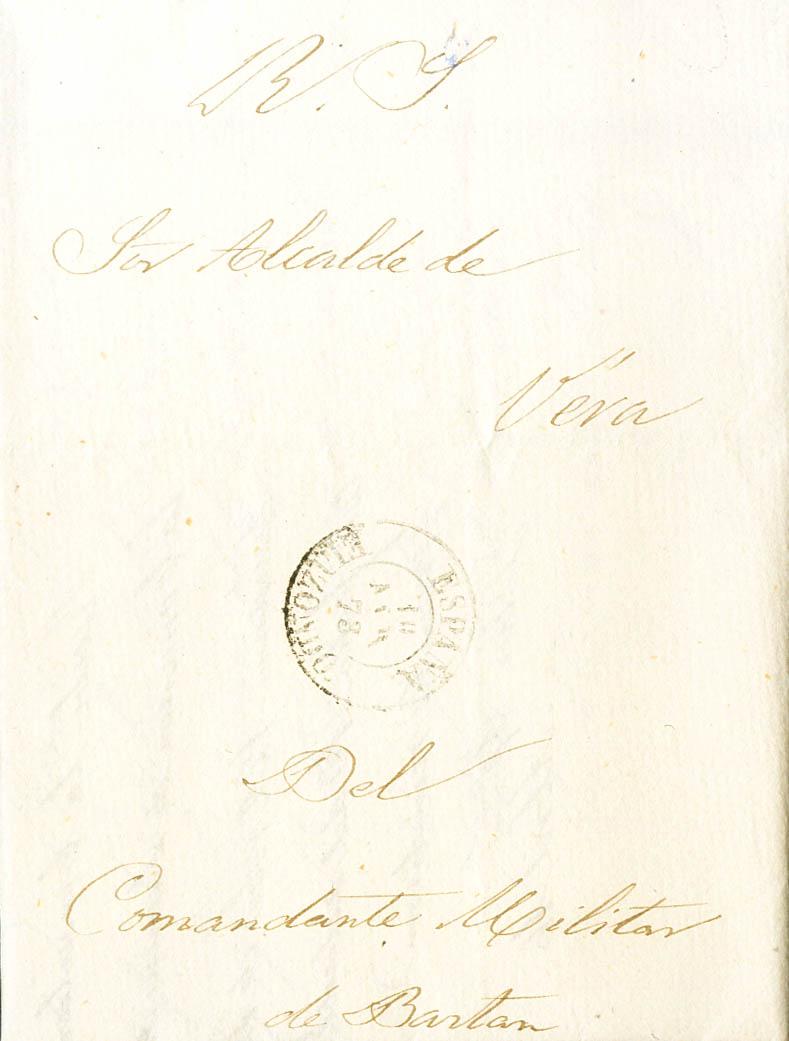 R. S.
Sor Alcalde de
Vera
ESPAÑA
18
ABR
73
ELIZONDO
Del
Comandante Militar
de Bartan